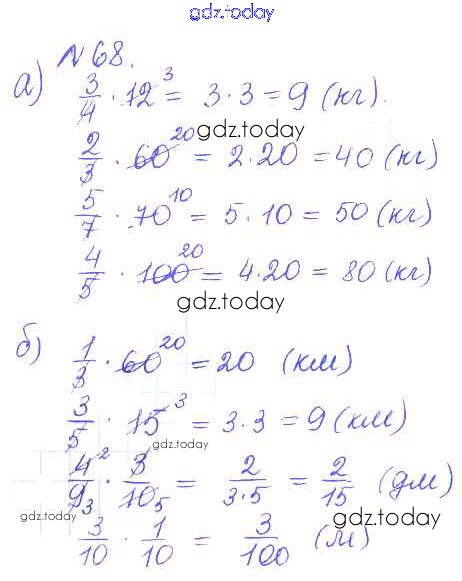 gdz.today
№68.
а) 3/4 · 12³ = 3·3 = 9 (кг).
gdz.today
2/3 · 60²⁰ = 2·20 = 40 (кг)
5/7 · 70¹⁰ = 5·10 = 50 (кг)
4/5 · 100²⁰ = 4·20 = 80 (кг)
gdz.today
б) 1/3 · 60²⁰ = 20 (км)
3/5 · 15³ = 3·3 = 9 (км)
gdz.today
4²/9₃ · 3/10₅ = 2/3·5 = 2/15 (дм)
gdz.today gdz.today
3/10 · 1/10 = 3/100 (м)